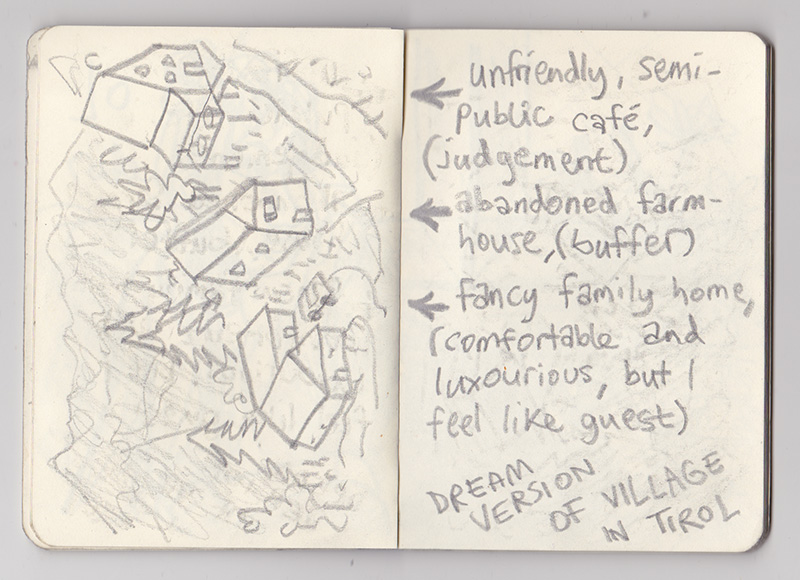 unfriendly, semi-
public café,
(judgement)
abandoned farm-
house, (buffer)
fancy family home,
(comfortable and
luxourious, but I
feel like guest)
DREAM
VERSION
OF VILLAGE
IN TIROL